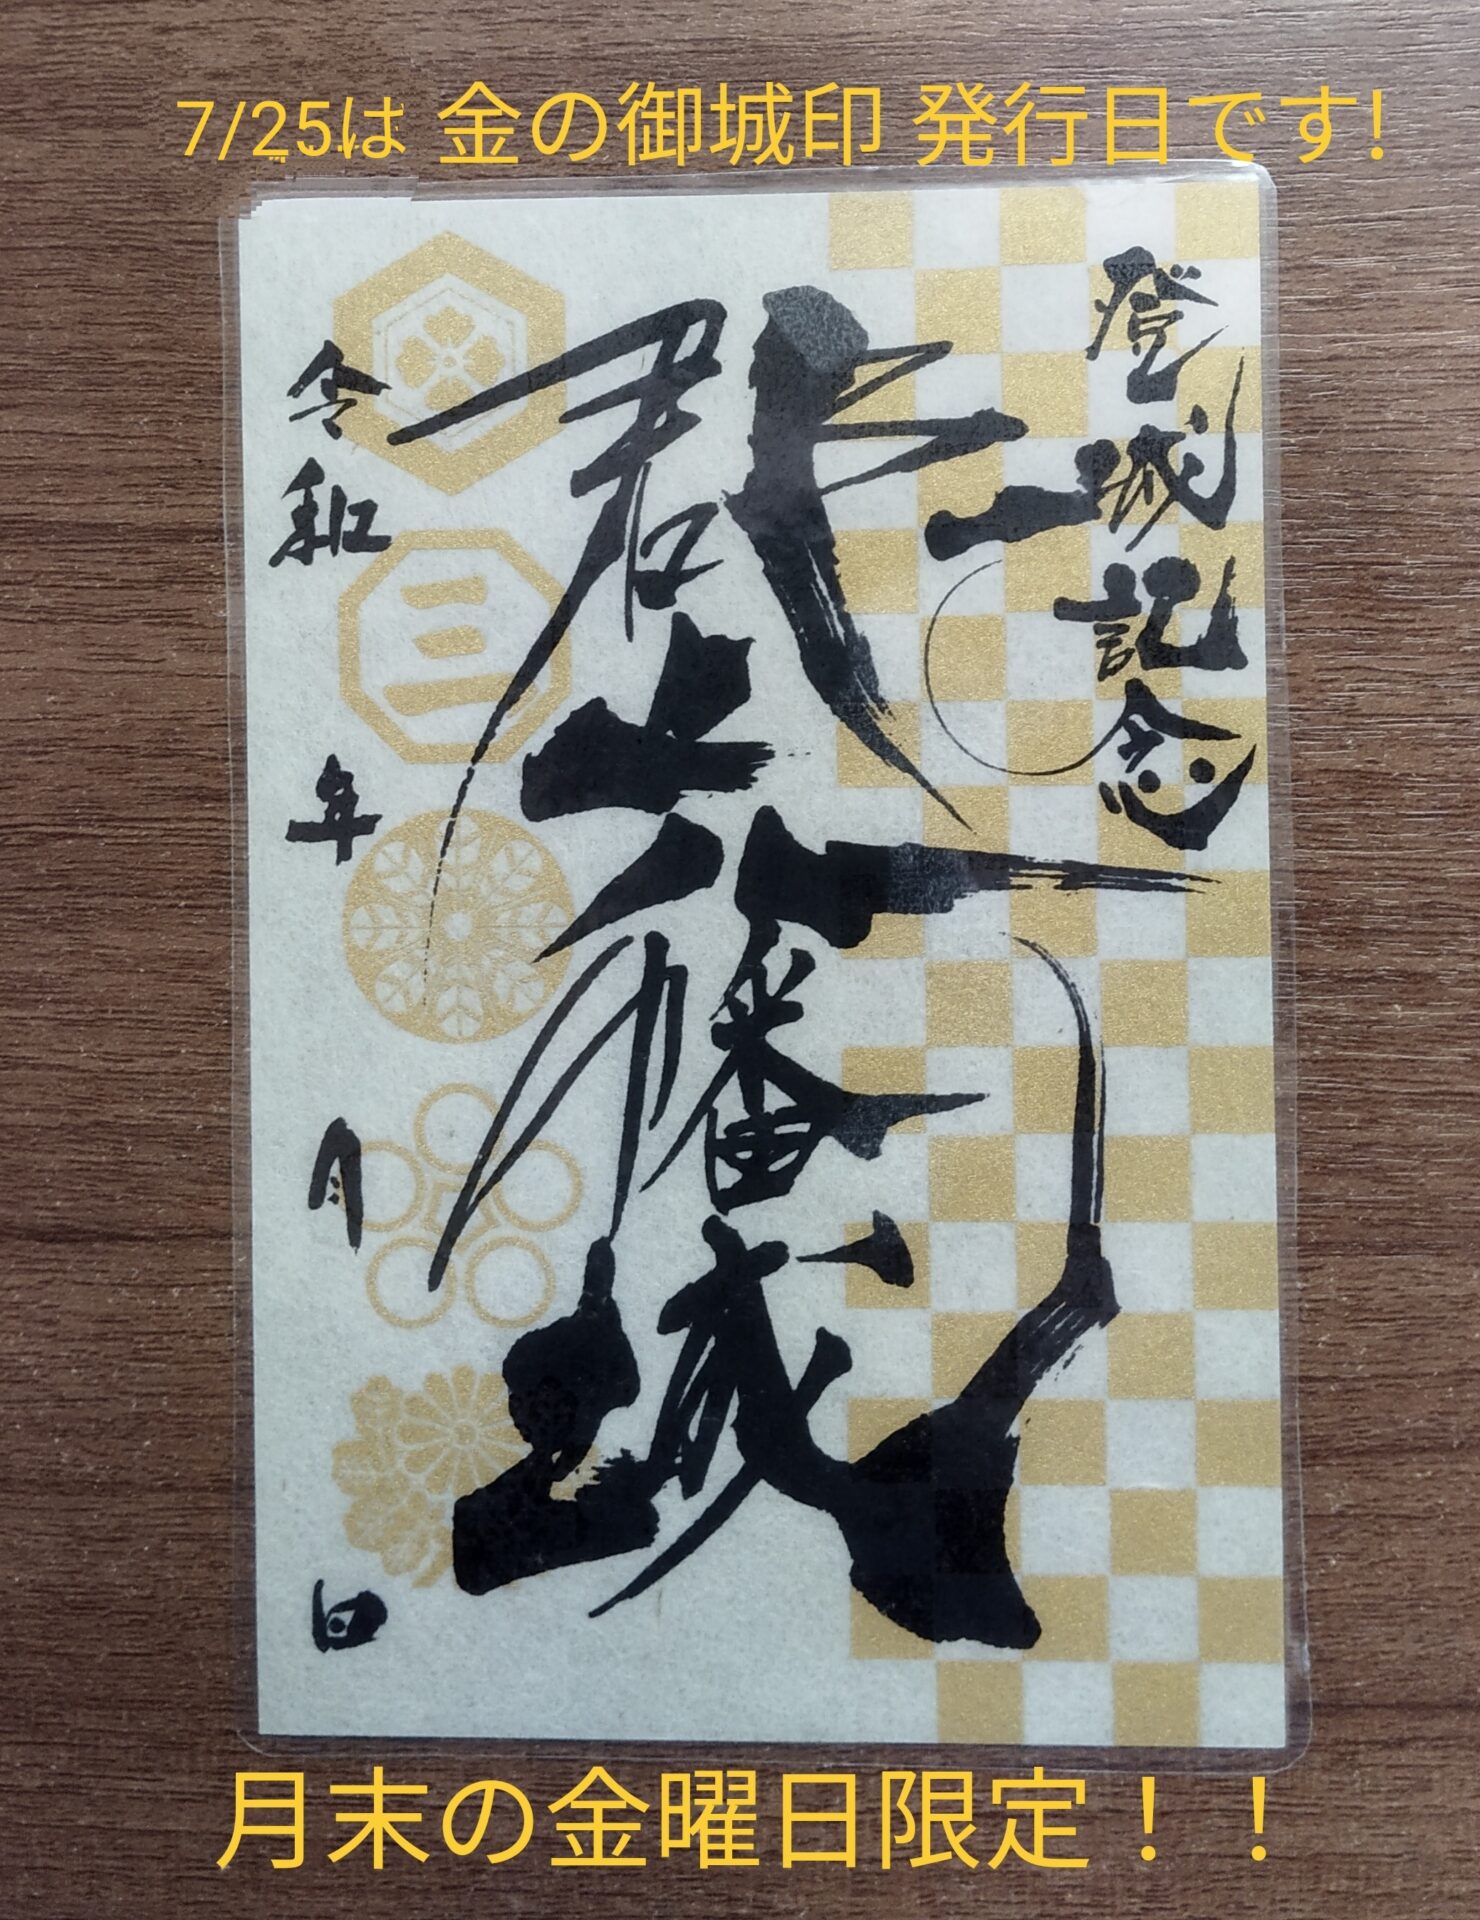 7/25は 金の御城印 発行日です!
登城記念
郡上八幡城
令和 年 月 日
三
月末の金曜日限定！！